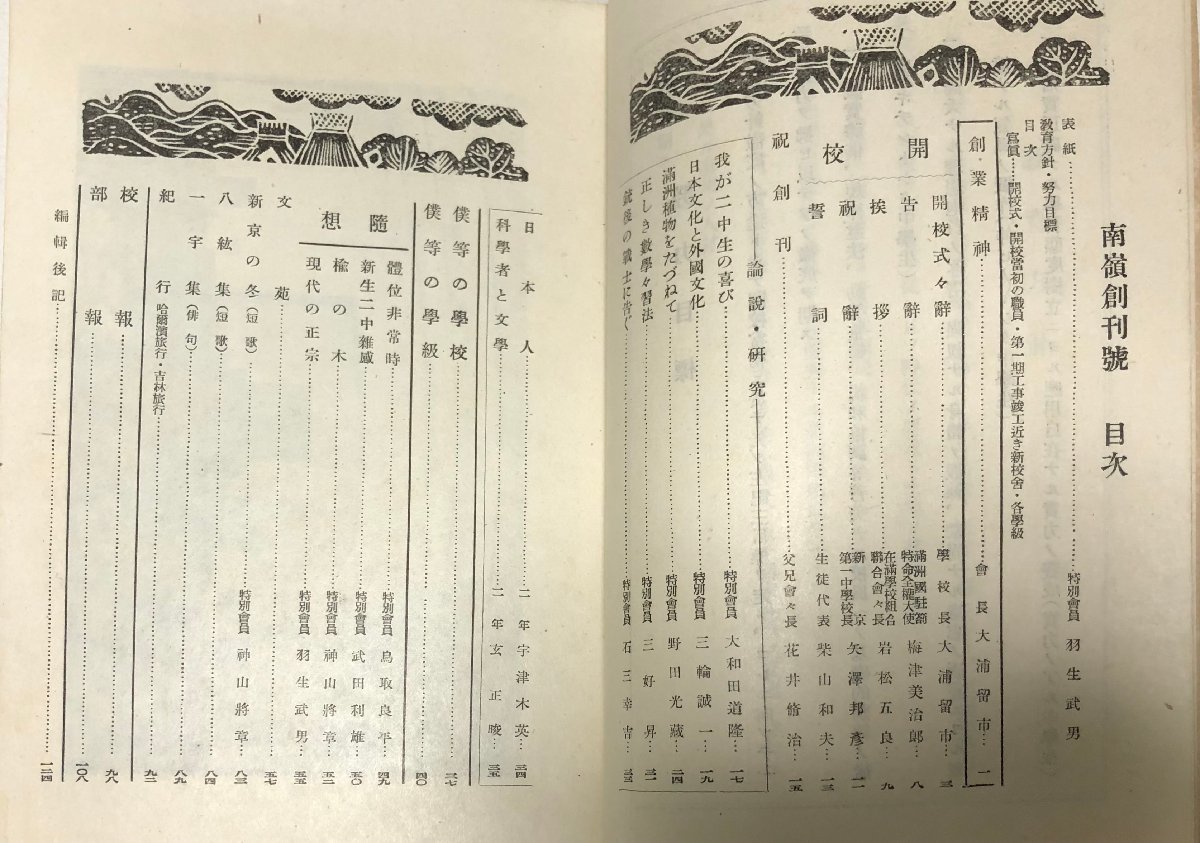 南嶺創刊號　目次
表紙…特別會員　羽生武男
教育方針・努力目標
目次
寫眞……開校式・開校當初の職員・第一期工事竣工近き新校舍・各學級
創業精神…會長　大浦留市…一
開校
開校式々辭…學校長　大浦留市…三
告辭…滿洲國駐箚特命全權大使　梅津美治郎…八
挨拶…在滿學校組合聯合會々長　岩松五良…九
祝辭…新京第一中學校長　矢澤邦彥…一一
誓詞…生徒代表　柴山和夫…一三
祝創刊…父兄會々長　花井脩治…一五
論說・硏究
我が二中生の喜び…特別會員　大和田道隆…一七
日本文化と外國文化…特別會員　三輪誠一…一九
滿洲植物をたづねて…特別會員　野田光藏…二四
正しき數學々習法…特別會員　三好昇…三一
銃後の戰士に告ぐ…特別會員　石三幸吉…三三
日本人…二年　宇津木英…三四
科學者と文學…二年　玄正晙…三五
僕等の學校…三七
僕等の學級…四〇
隨想
體位非常時…特別會員　鳥取良平…四九
新生二中雜感…特別會員　武田利雄…五〇
楡の木…特別會員　神山將章…五二
現代の正宗…特別會員　羽生武男…五五
文苑…五七
新京の冬（短歌）…特別會員　神山將章…八三
八紘集（短歌）…八四
一宇集（俳句）…八九
紀行　哈爾濱旅行・吉林旅行…九二
校報…九八
部報…一〇八
編輯後記…一二四